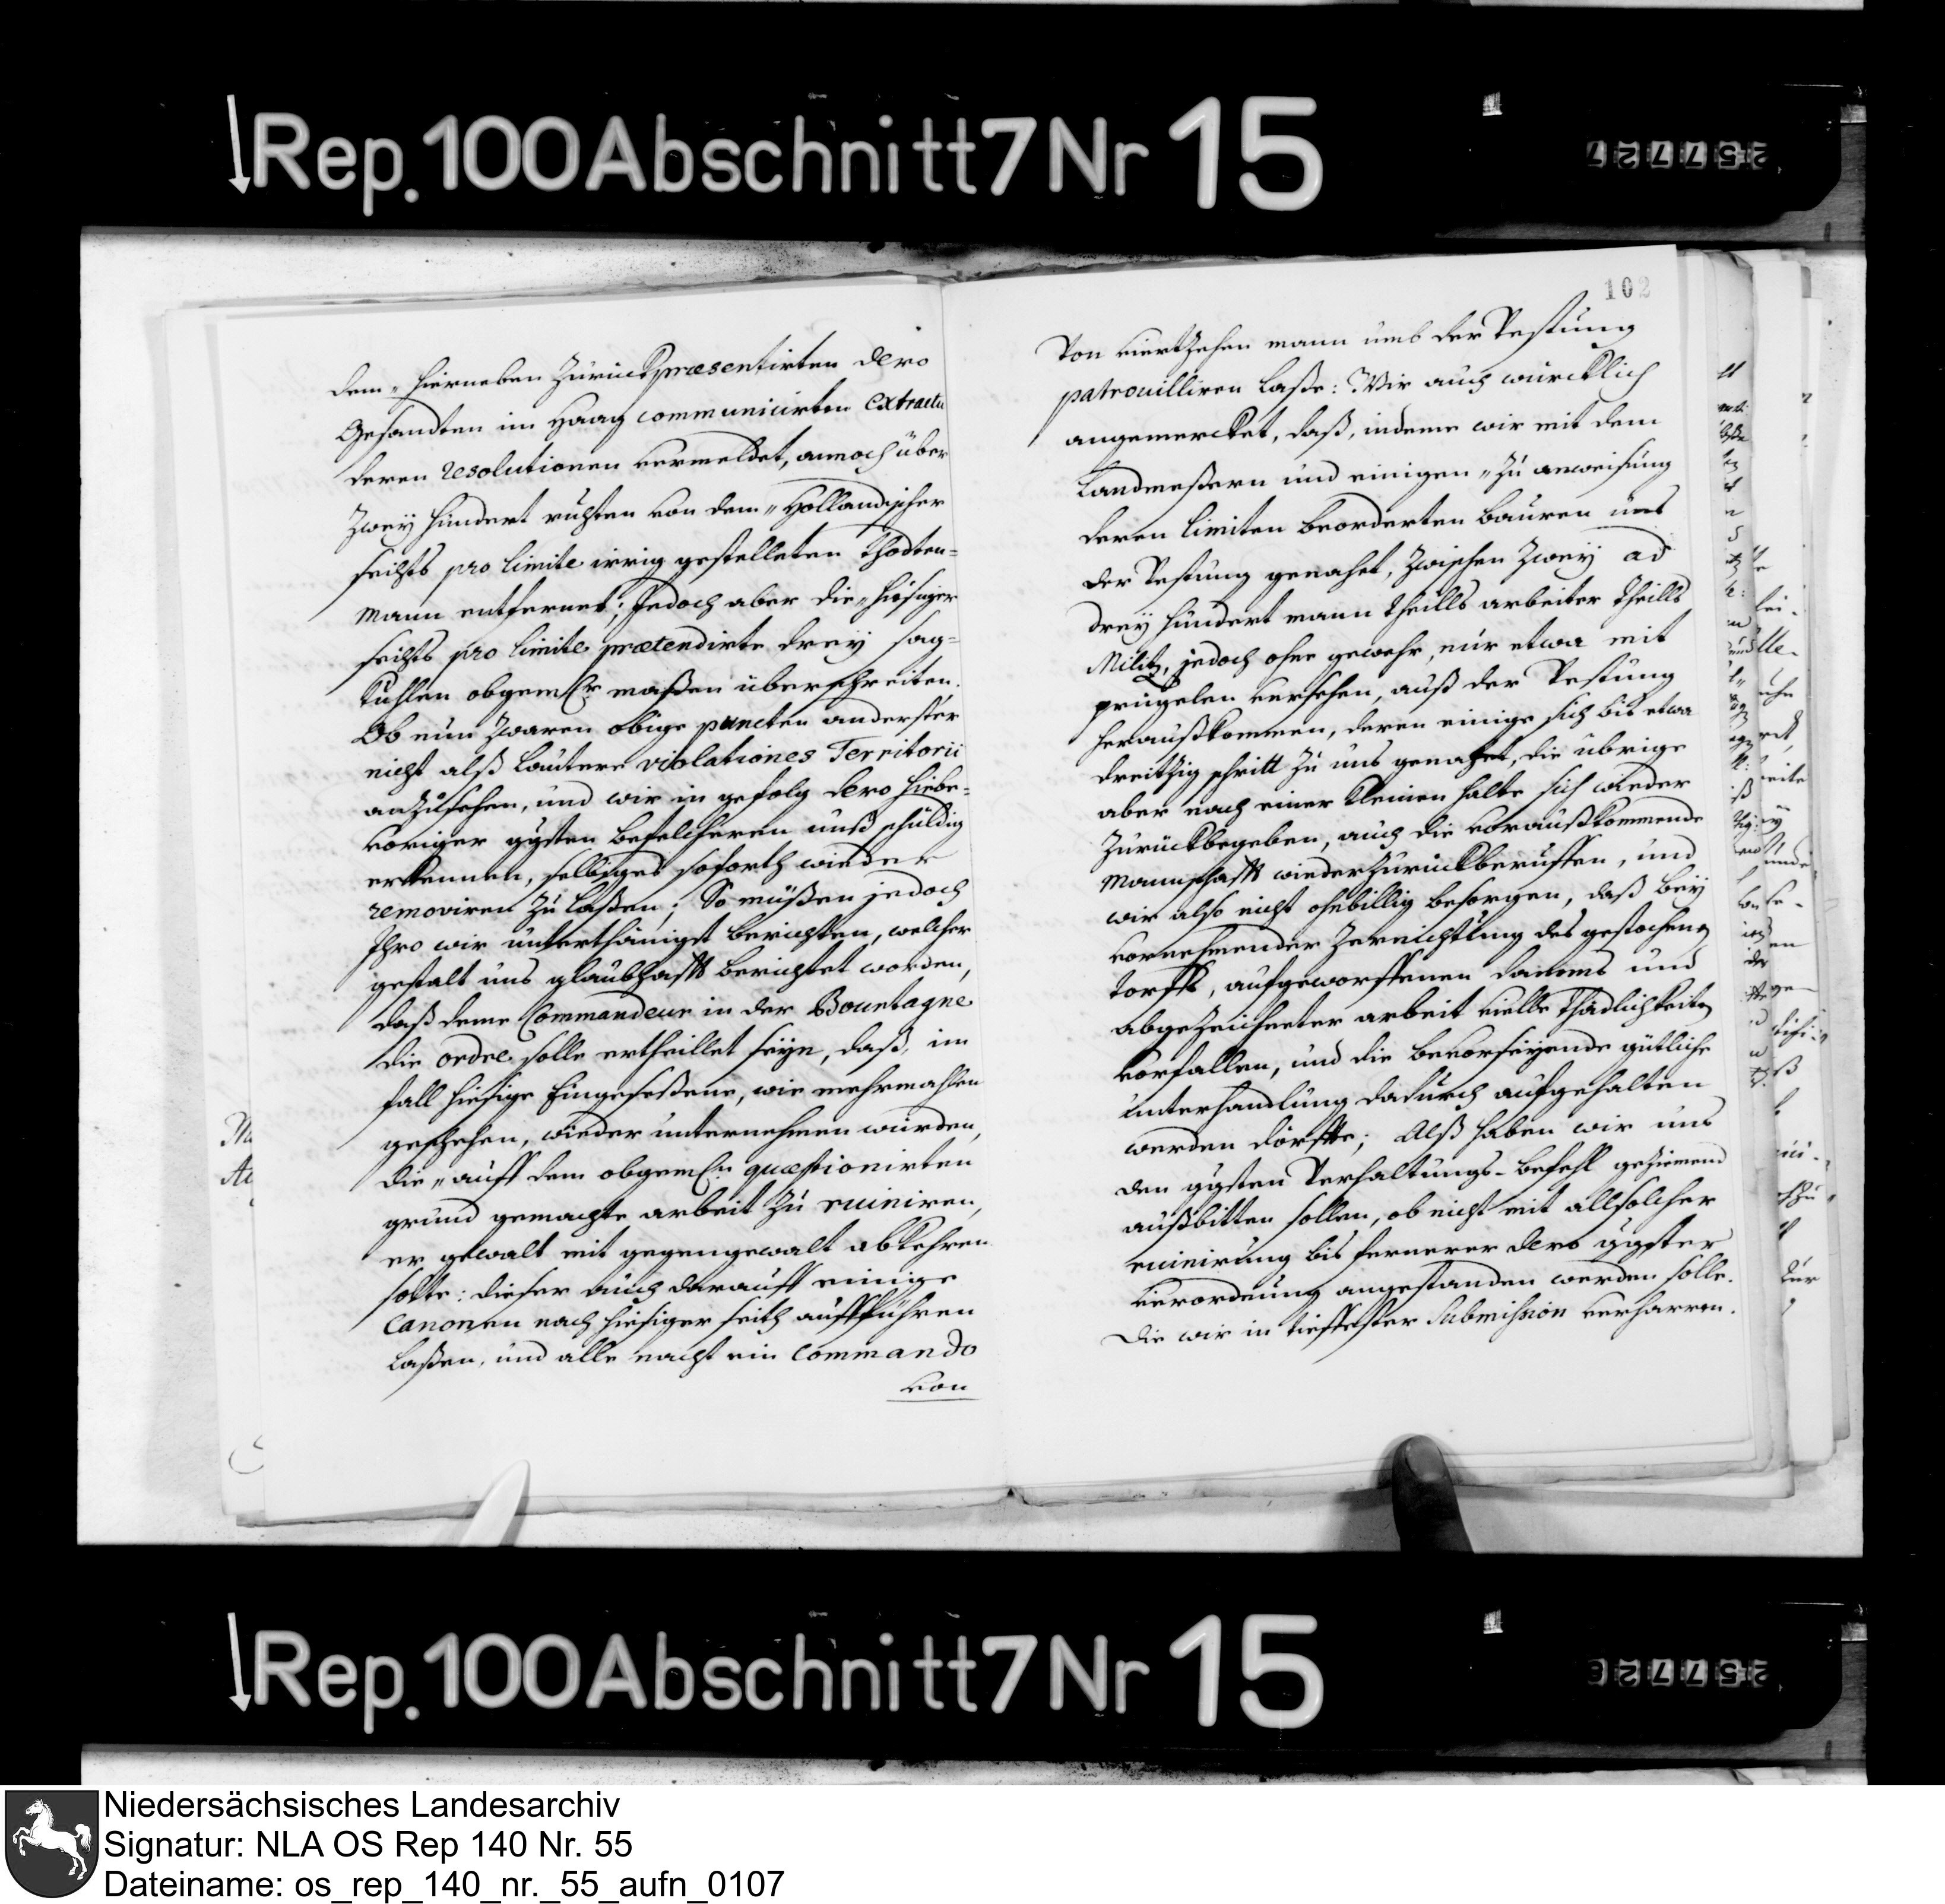 Rep. 100 Abschnitt 7 Nr 15
257727
102
dem „ hierneben Zurückpræsentirten dero
Gesandten im Haag communicirten extractu
deren resolutionen vermeldet, annoch über
Zwey hundert ruhten von dem „ Hollandischer
seiths pro limite irrig gestelleten Thodten=
mann entfernet; Jedoch aber die „ hiesiger
seiths pro limite prætendirte drey sag=
kuhlen obgemltr maßen überschreiten.
Ob nun Zwaren obige puncten anderster
nicht alß lautere violationes Territorii
anZusehen, und wir in gefolg dero hiebe=
voriger ggsten befelcheren unß schuldig
erkennen, selbiges soforth wieder
removiren Zu laßen; So müßen jedoch
Ihro wir unterthänigst berichten, welcher
gestalt uns glaubhafft berichtet worden,
daß deme Commandeur in der Bourtagne
die ordre solle ertheillet seyn, daß, im
fall hiesige Eingeseßene, wie mehrmahlen
geschehen, wieder unternehmen würden,
die „ auff dem obgemltn quæstionirten
grund gemachte arbeit Zu ruiniren,
er gewalt mit gegengewalt abkehren
solte: dieser auch darauff einige
canonen nach hiesiger seith auffführen
laßen, und alle nacht ein Commando
von
Von viertzehen mann umb der Vestung
patrouilliren laße: Wir auch würcklich
angemercket, daß, indeme wir mit dem
Landmeßern und einigen „ Zu anweisung
deren limiten beorderten bauren uns
der Vestung genahet, Zwischen Zwey ad
drey hundert mann theills arbeiter theills
Militz, jedoch ohne gewehr, nur etwa mit
prügelen versehen, auß der Vestung
heraußkommen, deren einige sich bis etwa
dreitzig schritt Zu uns genahet, die übrige
aber nach einer kleinen halte sich wieder
Zurückbegeben, auch die voraußkommende
Mannschafft wieder Zurückberuffen, und
wir also nicht ohnbillig besorgen, daß bey
vornehmender Zernichtung des gestochenen
torffs, aufgeworffenen dammes und
abgezeichneter arbeit vielle thädlichkeiten
vorfallen, und die bevorseyende gütliche
unterhandlung dadurch aufgehalten
werden dörffte; Alß haben wir uns
den ggsten Verhaltungs-befehl geziemend
außbitten sollen, ob nicht mit allsolcher
ruinirung bis fernerer dero ggster
verordnung angestanden werden solle.
Die wir in tieffester Submission verharren.
Rep. 100 Abschnitt 7 Nr 15
Niedersächsisches Landesarchiv
Signatur: NLA OS Rep 140 Nr. 55
Dateiname: os_rep_140_nr._55_aufn_0107